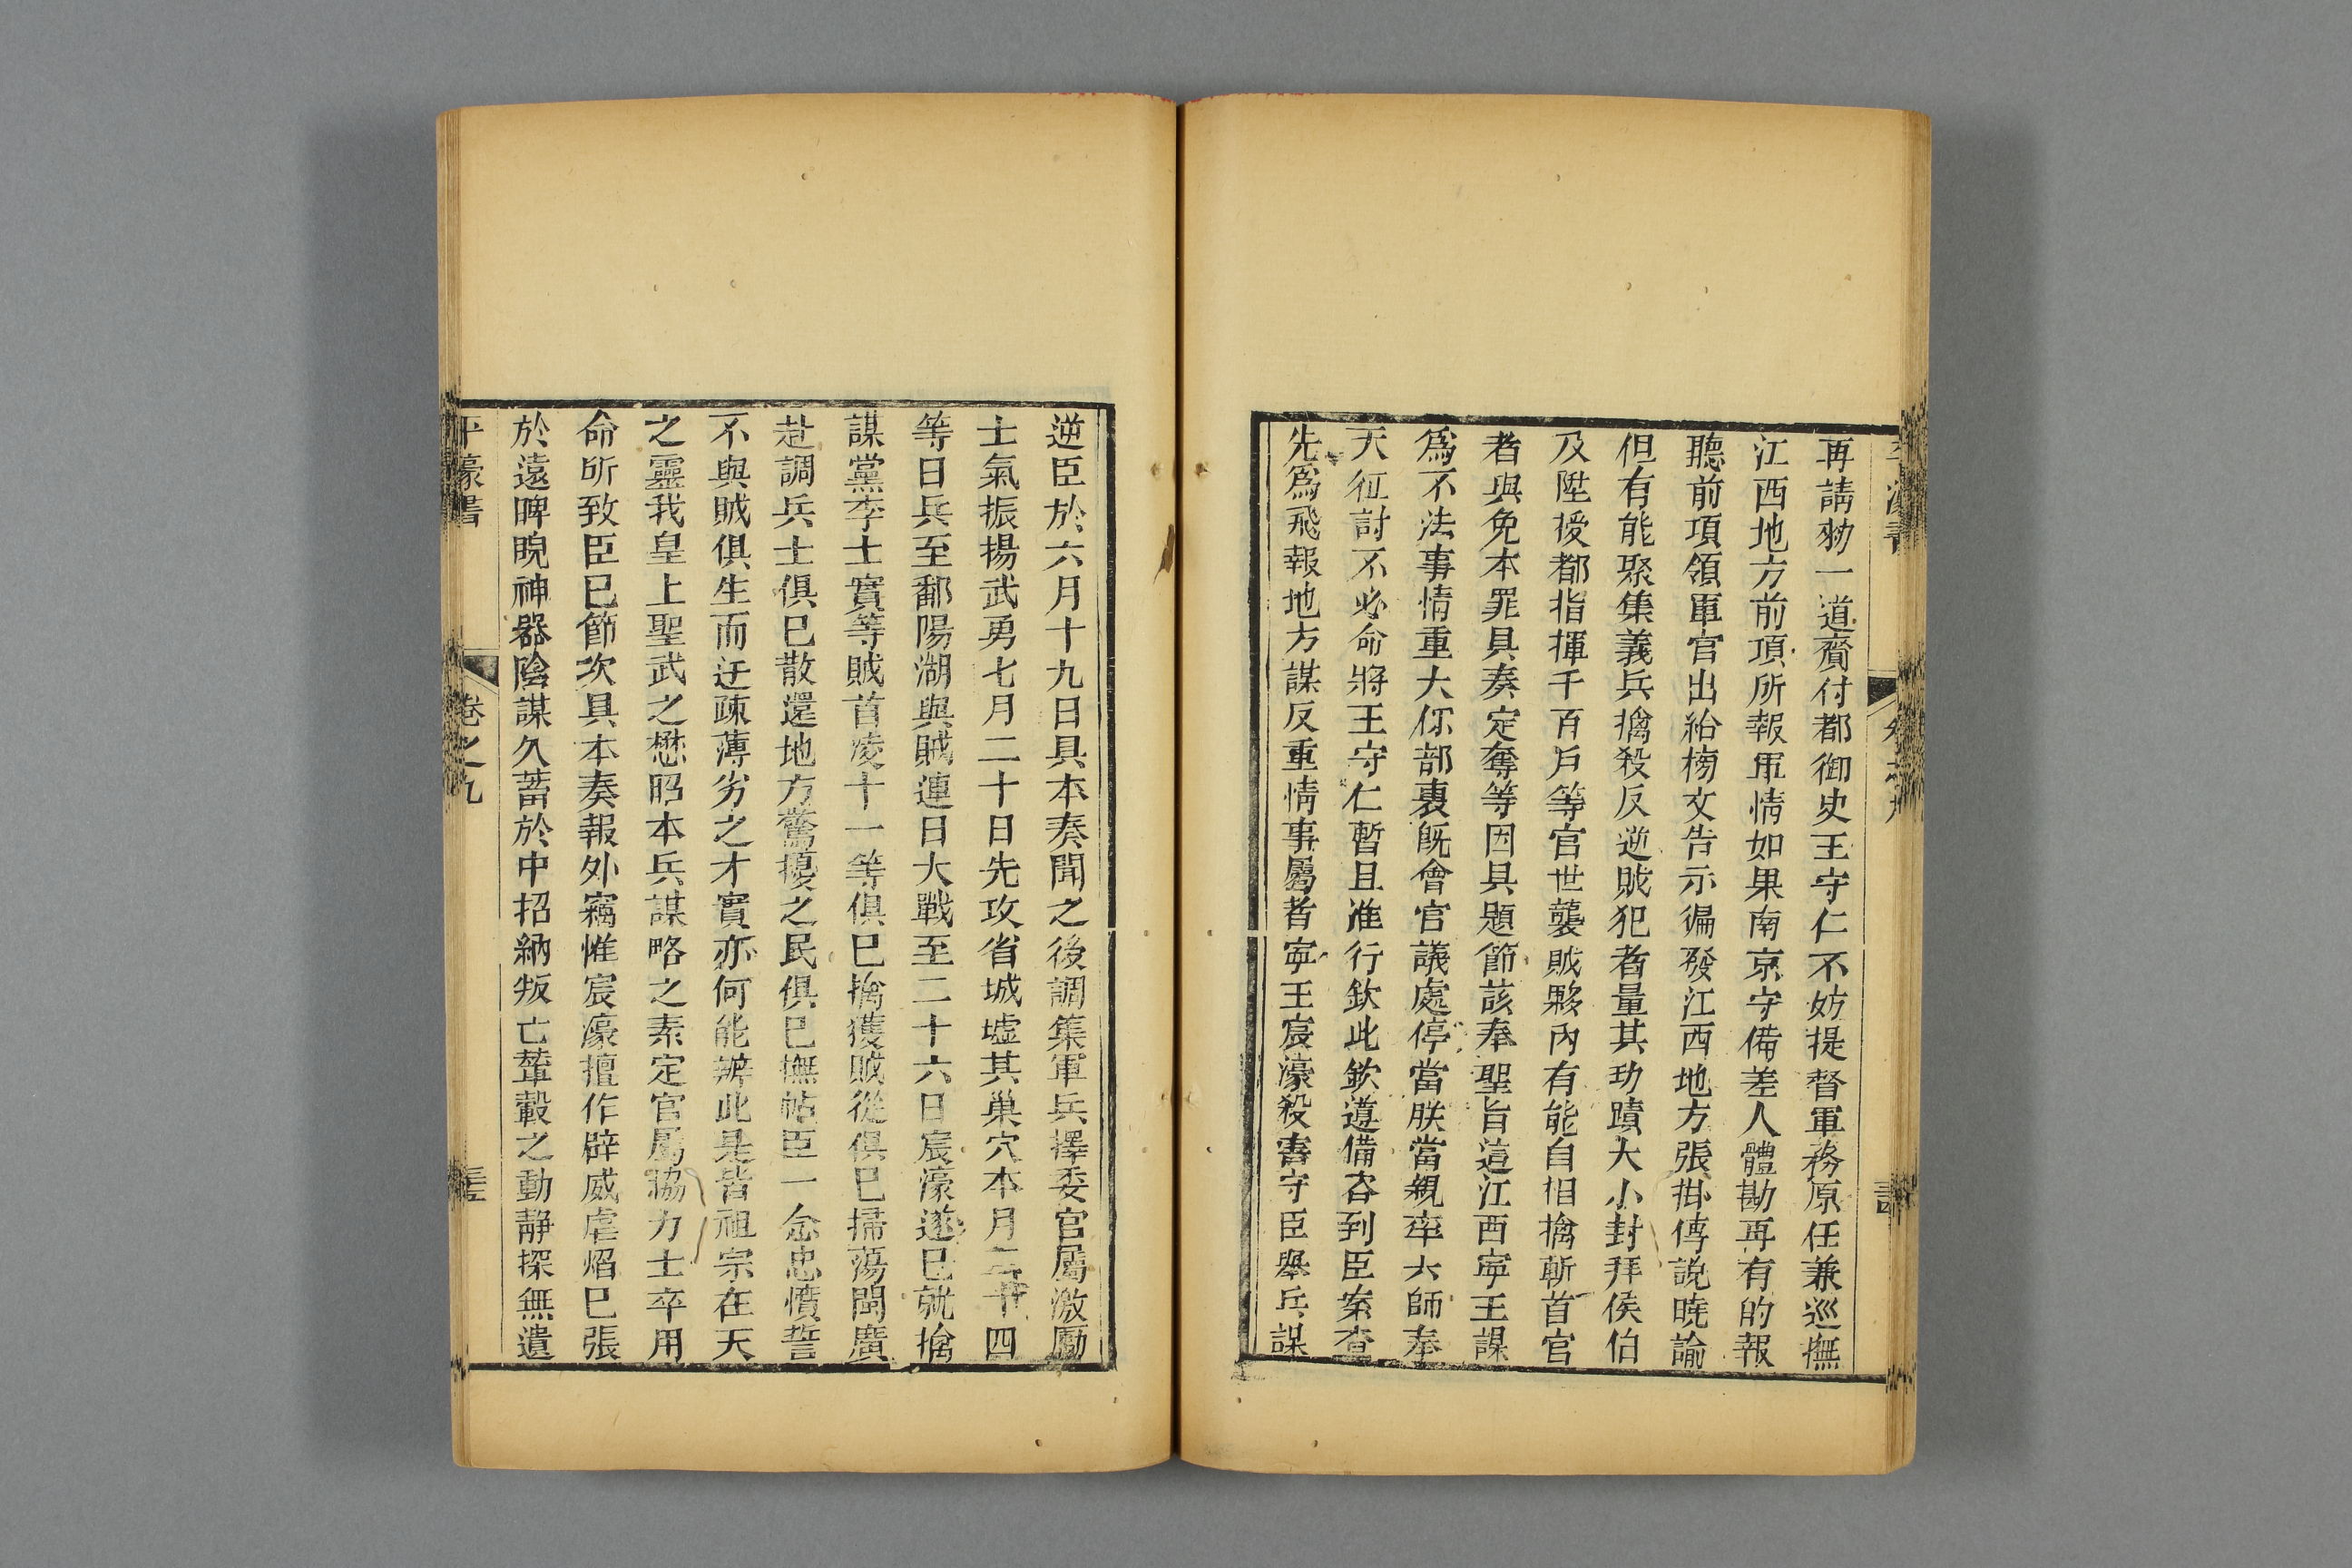 再請勑一道齎付都御史王守仁不妨提督軍務原任兼巡撫
江西地方前項所報軍情如果南京守備差人體勘再有的報
聽前項領軍官出給榜文告示徧發江西地方張掛傳說曉諭
但有能聚集義兵擒殺反逆賊犯者量其功蹟大小封拜侯伯
及陞授都指揮千百戶等官世襲賊夥內有能自相擒斬首官
者與免本罪具奏定奪等因具題節該奉聖旨這江西寧王謀
爲不法事情重大你部裏旣會官議處停當朕當親率六師奉
天征討不必命將王守仁暫且准行欽此欽遵備咨到臣案查
先爲飛報地方謀反重情事屬者寧王宸濠殺害守臣舉兵謀
逆臣於六月十九日具本奏聞之後調集軍兵擇委官屬激勵
士氣振揚武勇七月二十日先攻省城墟其巢穴本月二十四
等日兵至鄱陽湖與賊連日大戰至二十六日宸濠遂已就擒
謀黨李士實等賊首凌十一等俱已擒獲賊從俱已掃蕩閩廣
赴調兵士俱已散還地方驚擾之民俱已撫帖臣一念忠憤誓
不與賊俱生而迂疎薄劣之才實亦何能辦此是皆祖宗在天
之靈我皇上聖武之懋昭本兵謀略之素定官屬協力士卒用
命所致臣已節次具本奏報外竊惟宸濠擅作辟威虐焰已張
於遠睥睨神器陰謀久蓄於中招納叛亡輦轂之動靜探無遺
平濠書
卷之九